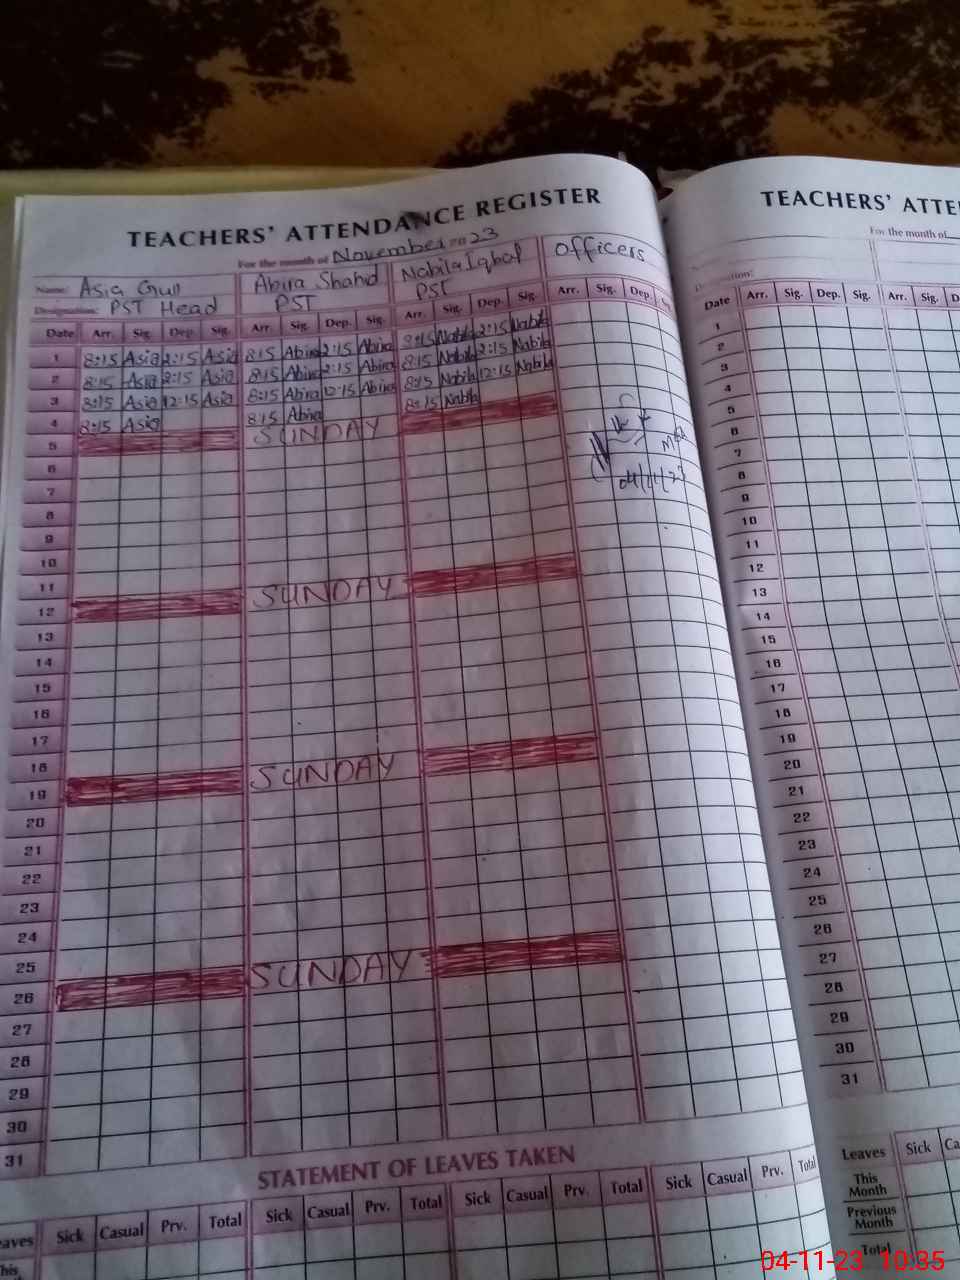 TEACHERS' ATTENDANCE REGISTER
For the month of November 2023
Name: Asia Gull Abira Shahid Nabila Iqbal officers
Designation: PST Head PST PST
Date Arr. Sig. Dep. Sig. Arr. Sig. Dep. Sig. Arr. Sig. Dep. Sig. Arr. Sig. Dep. Sig.
1 8:15 Asia 2:15 Asia 8:15 Abira 2:15 Abira 8:15 Nabila 2:15 Nabila
2 8:15 Asia 2:15 Asia 8:15 Abira 2:15 Abira 8:15 Nabila 2:15 Nabila
3 8:15 Asia 12:15 Asia 8:15 Abira 12:15 Abira 8:15 Nabila 12:15 Nabila
4 8:15 Asia 8:15 Abira 8:15 Nabila
5 SUNDAY
6
7
8
9
10
11
12 SUNDAY
13
14
15
16
17
18
19 SUNDAY
20
21
22
23
24
25
26 SUNDAY
27
28
29
30
31
04/11/23
STATEMENT OF LEAVES TAKEN
Sick Casual Prv. Total Sick Casual Prv. Total Sick Casual Prv. Total Sick Casual Prv. Total
TEACHERS' ATTE
For the month of
Date Arr. Sig. Dep. Sig. Arr. Sig. Dep.
1
2
3
4
5
6
7
8
9
10
11
12
13
14
15
16
17
18
19
20
21
22
23
24
25
26
27
28
29
30
31
Leaves Sick Ca
This Month
Previous Month
Total
04-11-23 10:35